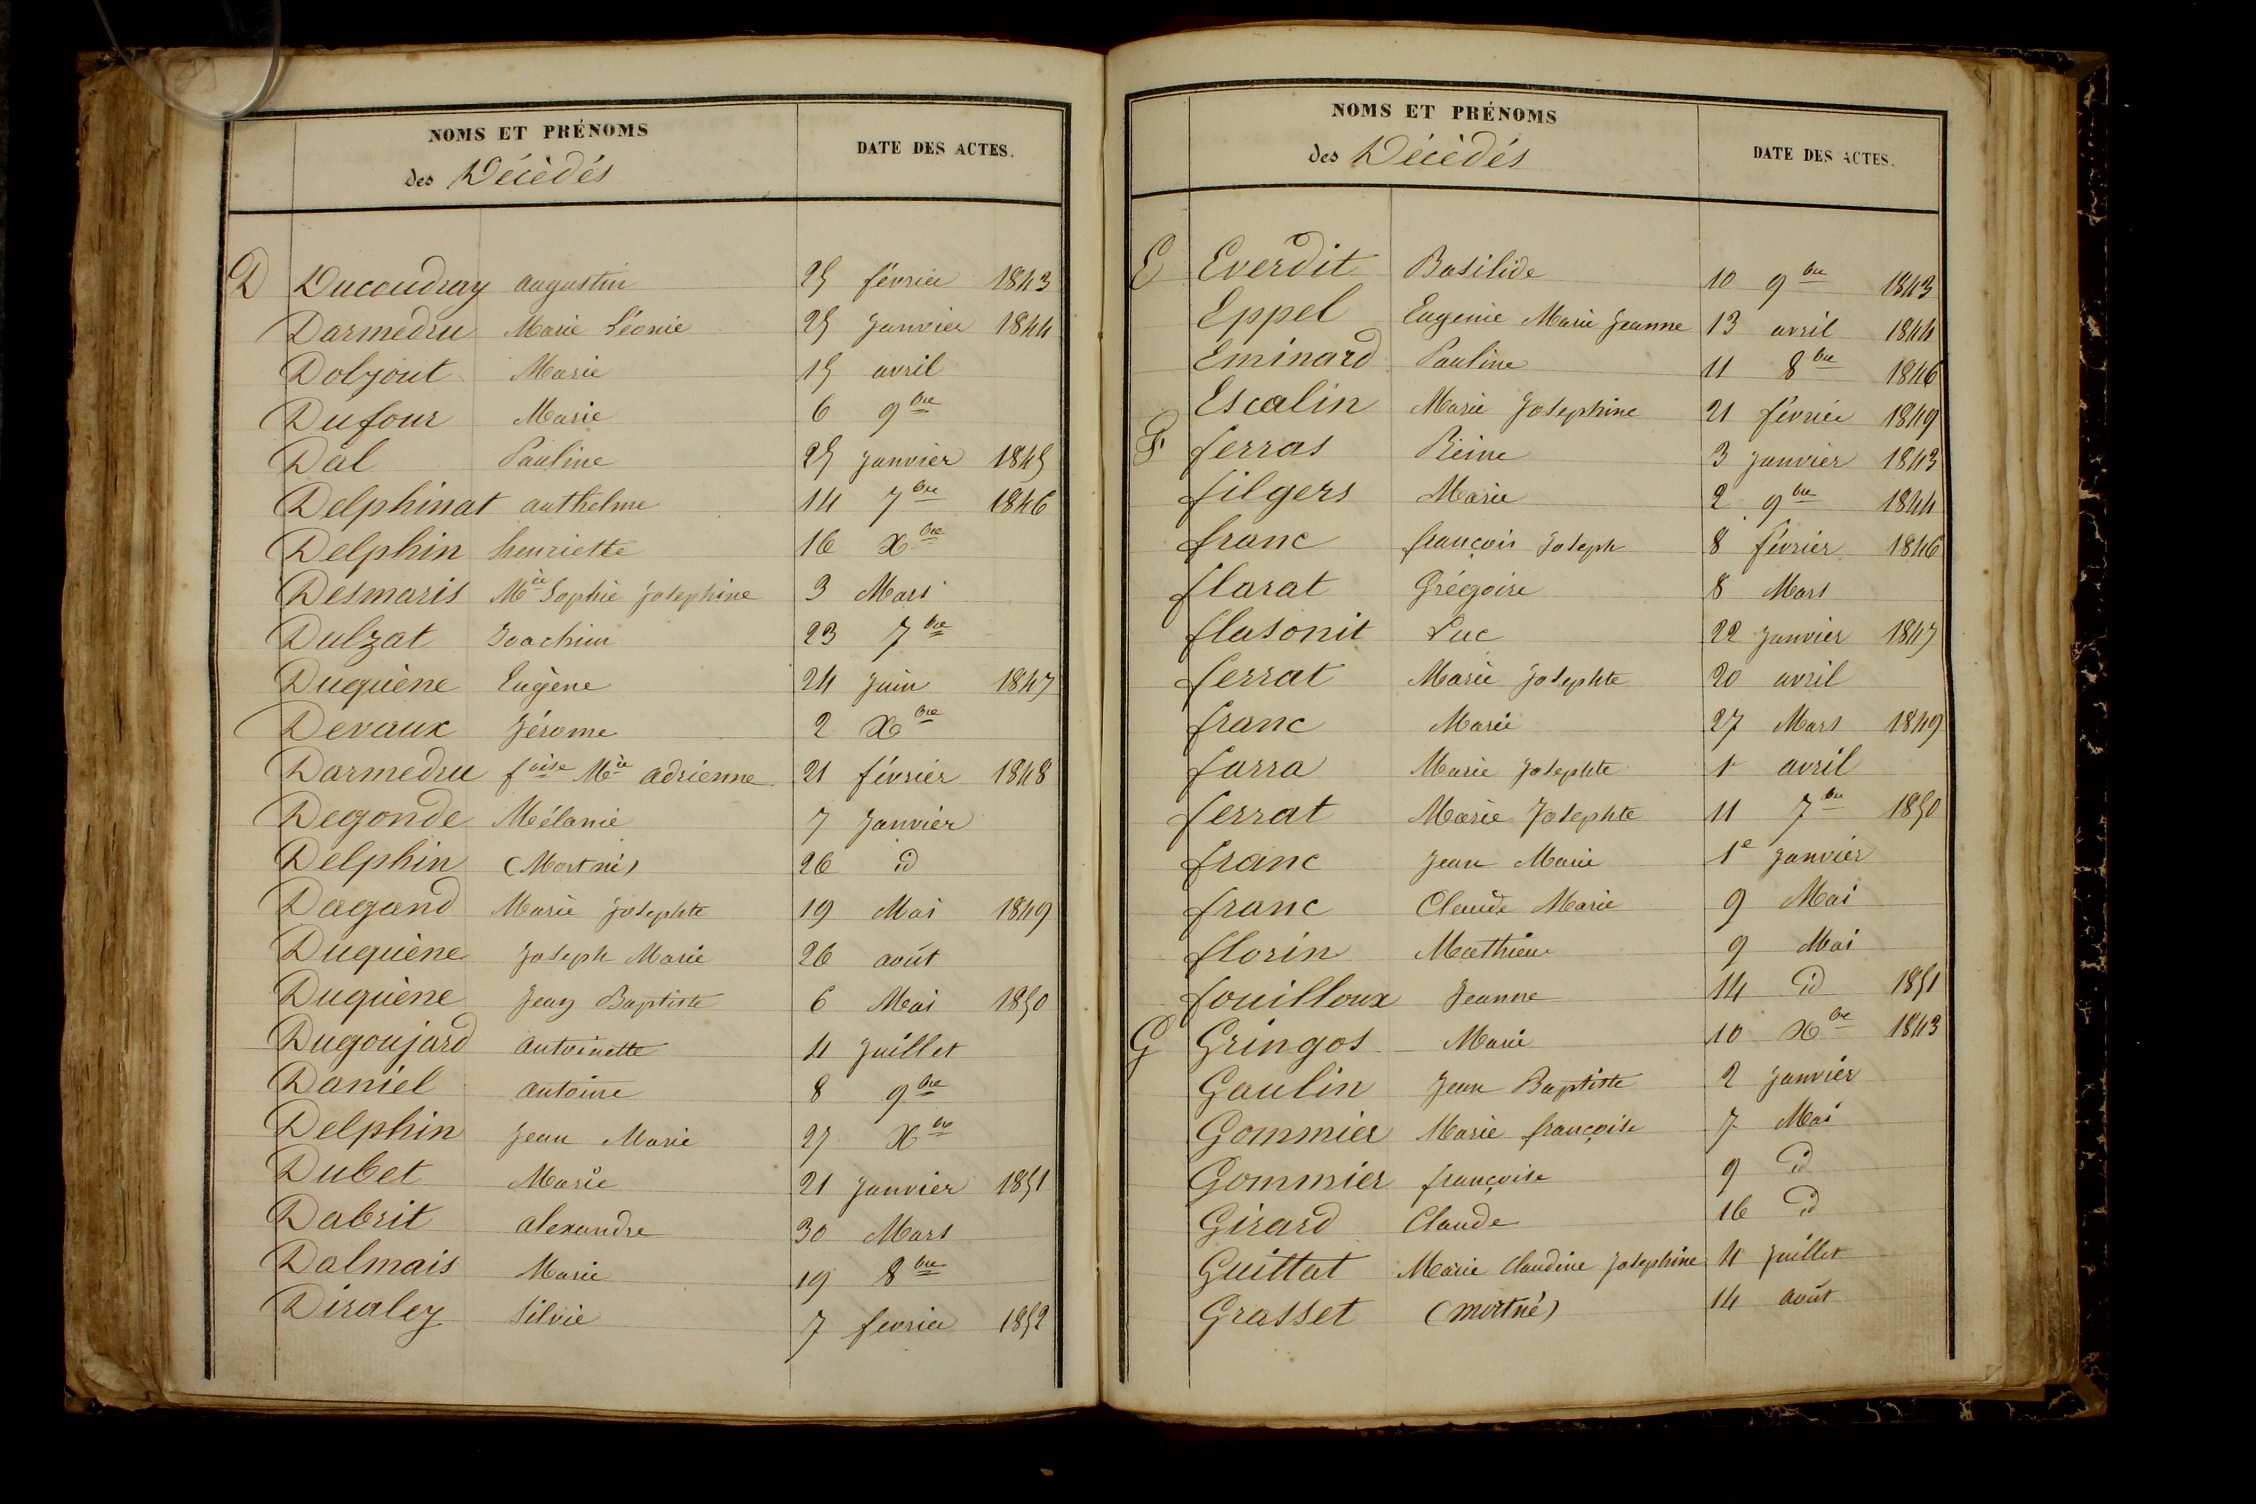 NOMS ET PRÉNOMS DATE DES ACTES.
des Décèdés
D Ducoudray augustin 25 février 1843
Darmedru Marie Léonie 25 Janvier 1844
Doljout Marie 15 avril
Dufour Marie 6 9bre
Dal Pauline 25 Janvier 1845
Delphinat anthelme 14 7bre 1846
Delphin henriette 16 Xbre
Desmaris Mie Sophie Josephine 3 Mars
Dulzat Joachim 23 7bre
Duquène Eugène 24 Juin 1847
Devaux Jérome 2 Xbre
Darmedru foise Mie adrienne 21 février 1848
Degonde Mélanie 7 Janvier
Delphin (Mort né) 26 id
Dagand Marie Josephte 19 Mai 1849
Duquène Joseph Marie 26 août
Duquène Jean Baptiste 6 Mai 1850
Dugoujard antoinette 4 Juillet
Daniel antoine 8 9bre
Delphin Jean Marie 27 Xbre
Dubet Marie 21 Janvier 1851
Dabrit alexandre 30 Mars
Dalmais Marie 19 8bre
Diraley Silvie 7 fevrier 1852
NOMS ET PRÉNOMS DATE DES ACTES.
des Décèdés
E Everdit Basilide 10 9bre 1843
Eppel Eugenie Marie Jeanne 13 avril 1844
Eminard Pauline 11 8bre 1846
Escalin Marie Josephine 21 février 1849
F ferras Reine 3 Janvier 1843
filgers Marie 2 9bre 1844
franc françois Joseph 8 février 1846
flarat Grégoire 8 Mars
flasonit Luc 22 Janvier 1847
ferrat Marie Josephte 20 avril
franc Marie 27 Mars 1849
farra Marie Josephte 1r avril
ferrat Marie Josephte 11 7bre 1850
franc Jean Marie 1e Janvier
franc Claude Marie 9 Mai
florin Mathieu 9 Mai
fouilloux Jeanne 14 id 1851
G Gringos Marie 10 Xbre 1843
Gaulin Jean Baptiste 2 Janvier
Gommier Marie françoise 7 Mai
Gommier françoise 9 id
Girard Claude 16 id
Guittat Marie Claudine Josephine 4 Juillet
Grasset (mort né) 14 août